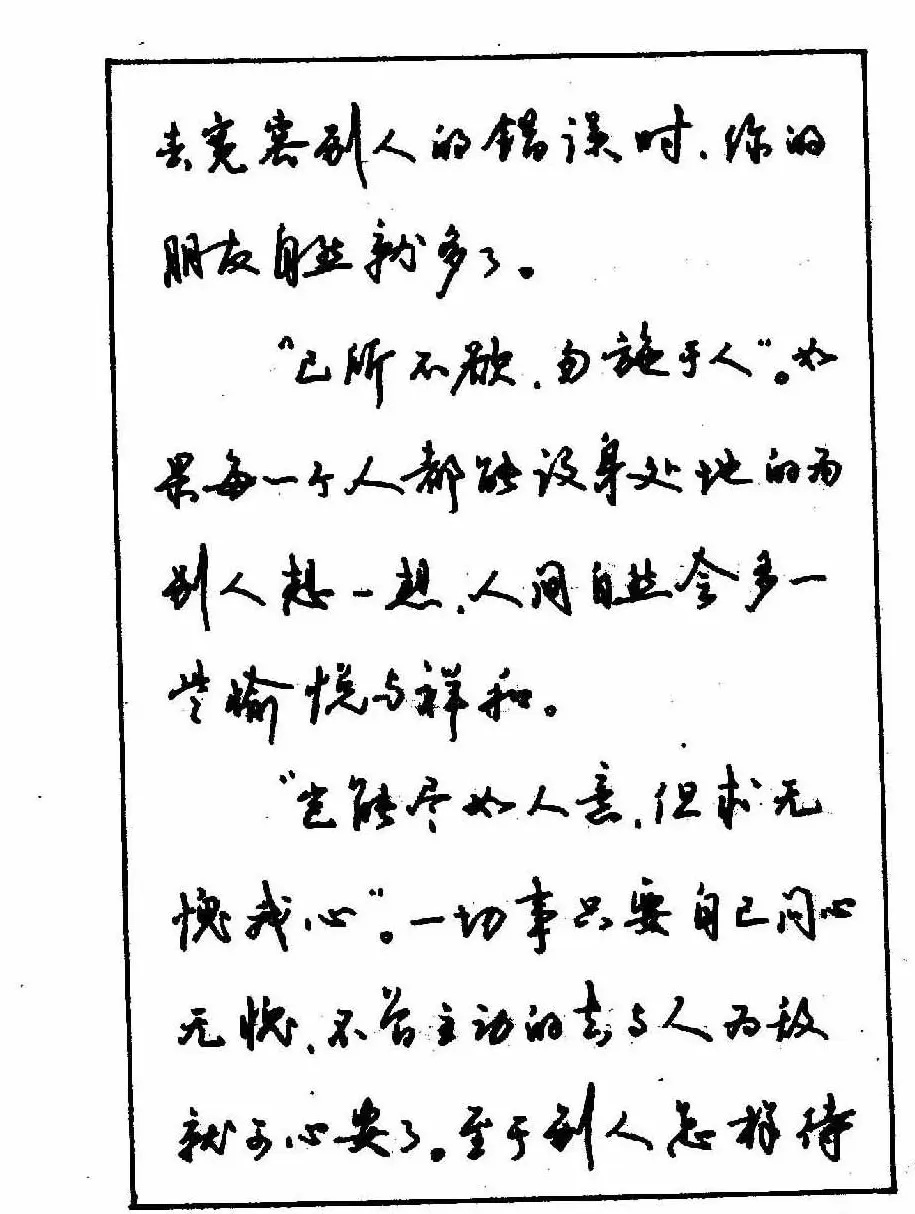 去宽容别人的错误时、你的
朋友自然就多了。
“己所不欲，勿施于人”。如
果每一个人都能设身处地的为
别人想一想，人间自然会多一
些愉悦与祥和。
“岂能尽如人意，但求无
愧我心”。一切事只要自己问心
无愧、不曾主动的去与人为敌
就可心安了。至于别人怎样待